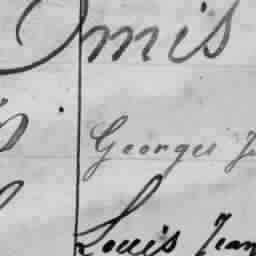 Omis
Georges J
Louis Jean